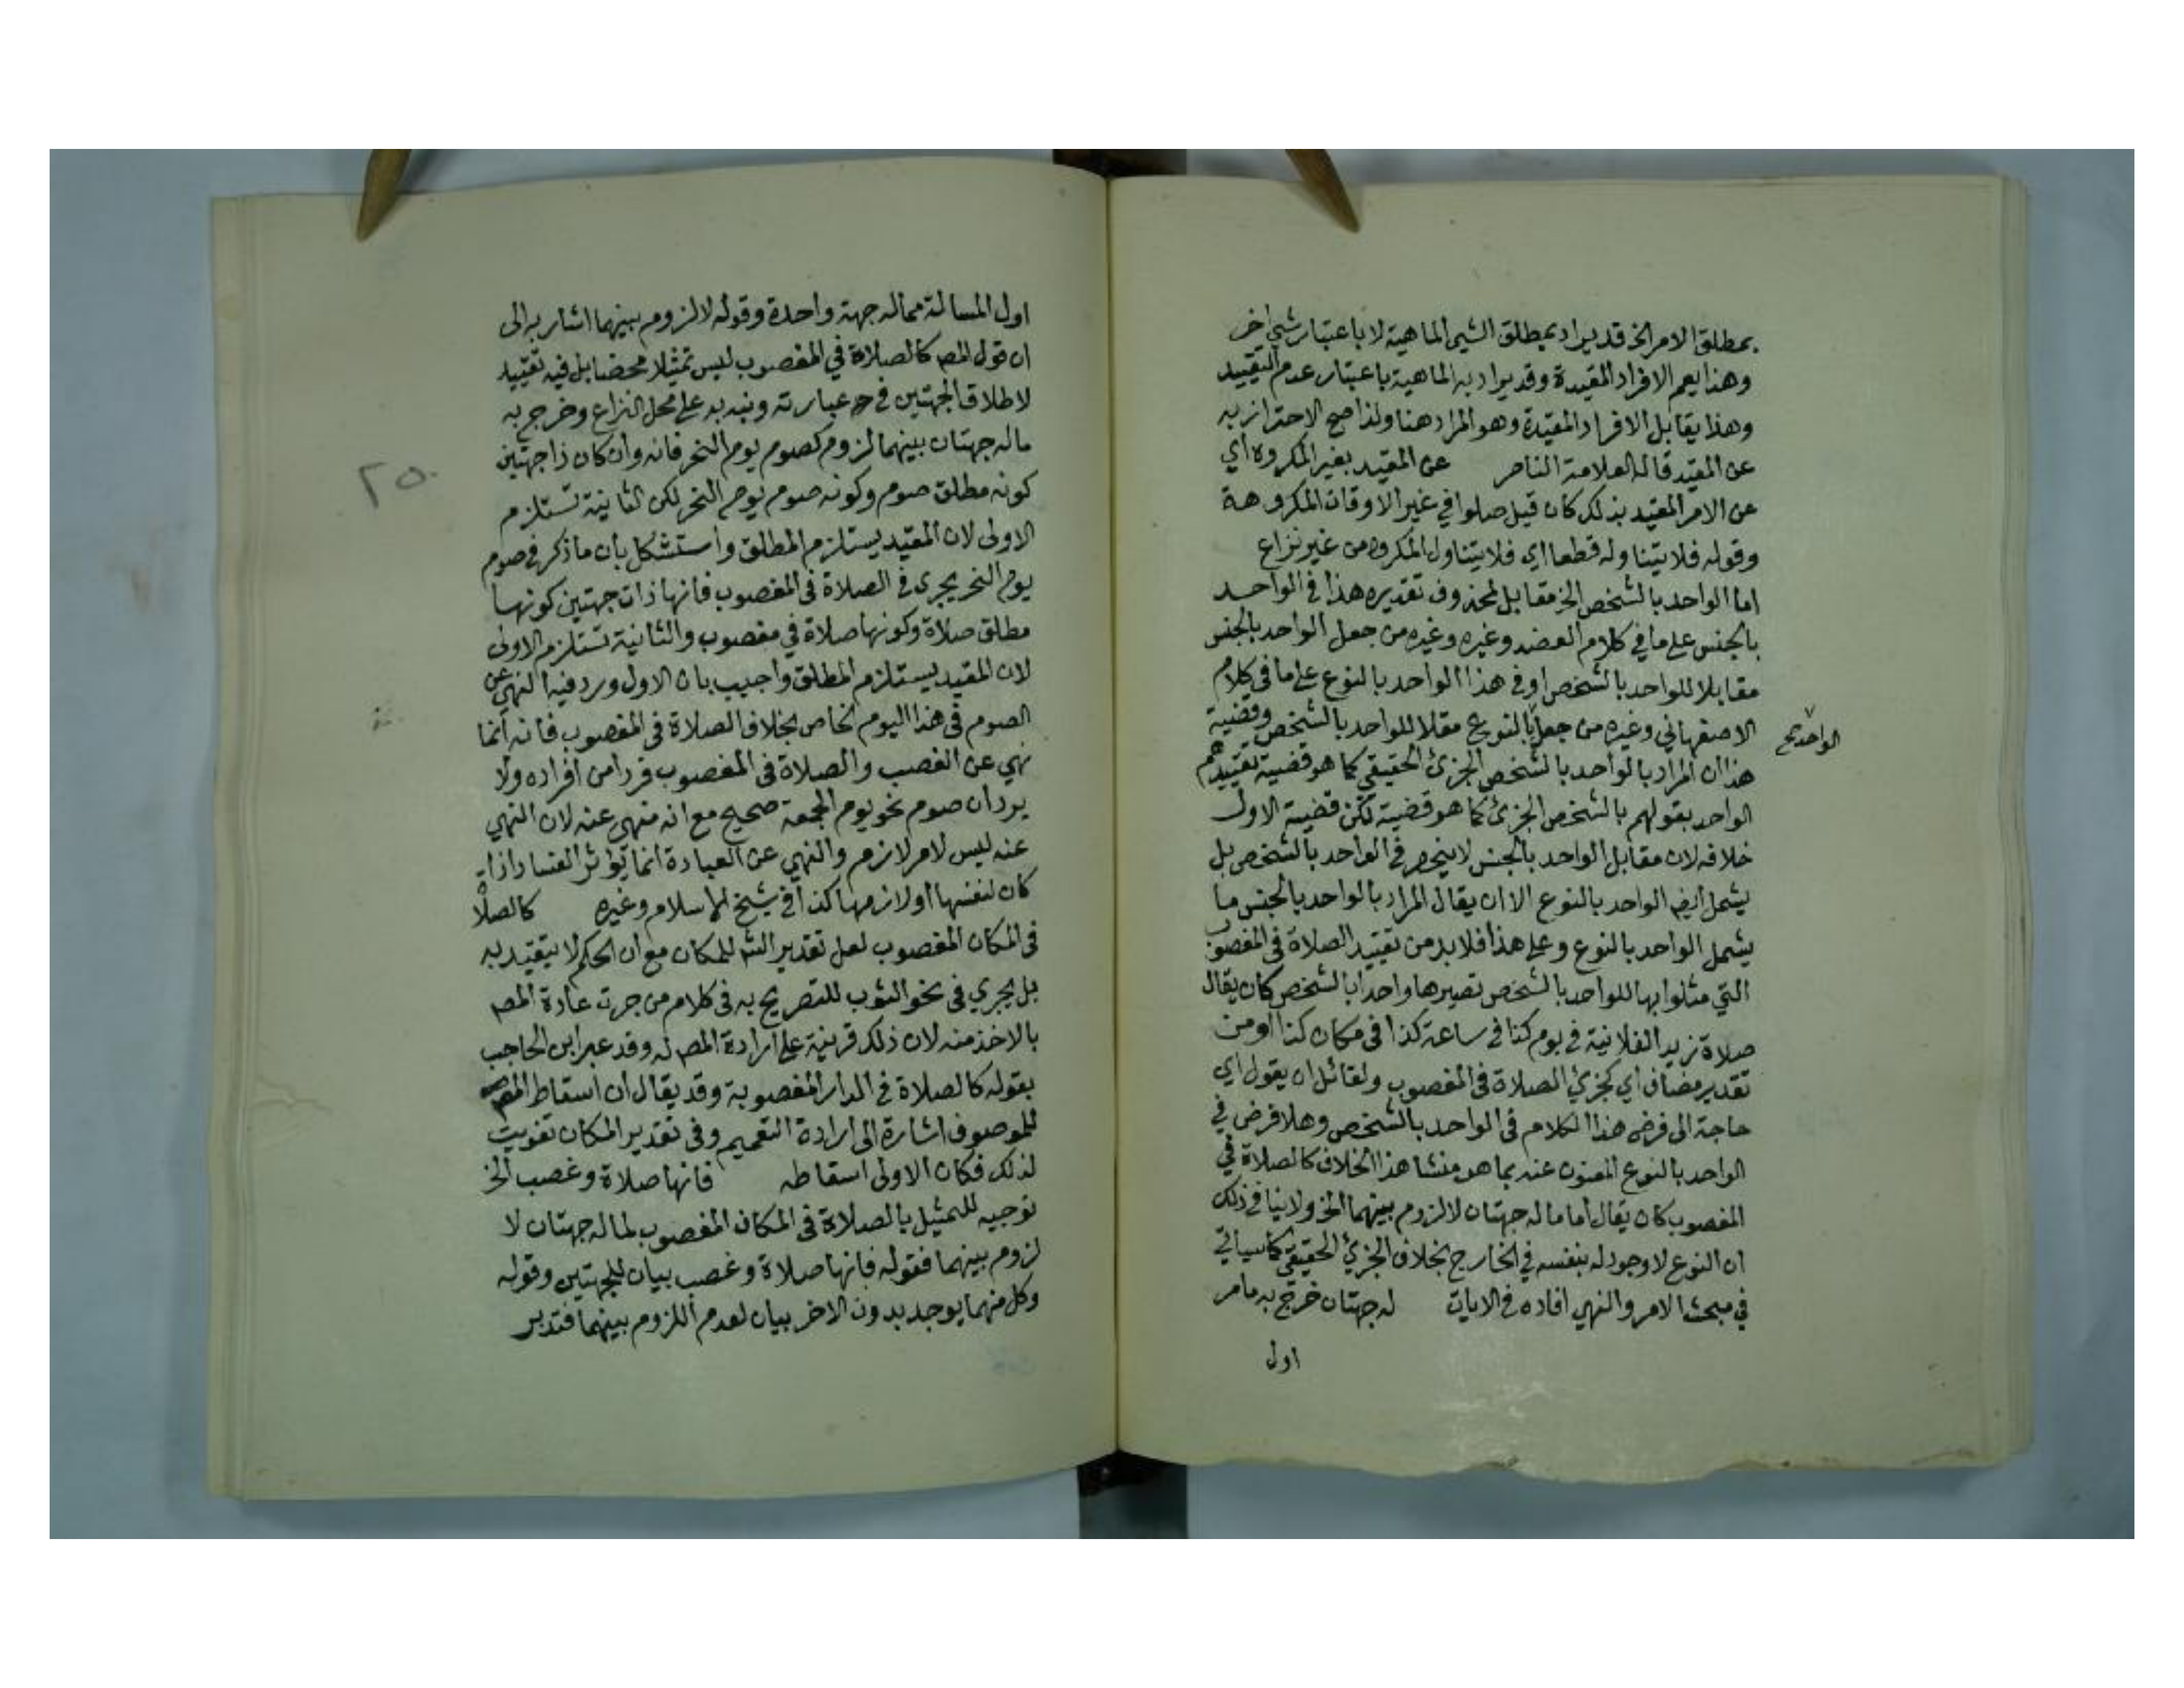 بمطلق الامر الخ قد يراد بمطلق الشيء الماهية لا باعتبار شيء اخر
وهذا يعم الافراد المقيدة وقد يراد به الماهية باعتبار عدم التقييد
وهذا يقابل الافراد المقيدة وهو المراد هنا ولذا صح الاحتراز به
عن المقيد قاله العلامة الناصر عن المقيد بغير المكروه اي
عن الامر المقيد بذلك كان قيل صلوا في غير الاوقات المكروهة
وقوله فلا يتناوله قطعا اي فلا يتناول المكروه من غير نزاع
اما الواحد بالشخص الخ مقابل لمحذوف تقديره هذا في الواحد
بالجنس على ما في كلام العضد وغيره وغيره من جعل الواحد بالجنس
مقابلا للواحد بالشخص او في هذا الواحد بالنوع على ما في كلام
الاصفهاني وغيره من جعل بالنوع مقلا للواحد بالشخص وقضية
الواحد صح
هذا ان المراد بالواحد بالشخص الجزئ الحقيقي كما هو قضية تقييدهم
الواحد بقولهم بالشخص الجزئ كما هو قضية لكن قضية الاول
خلافه لان مقابل الواحد بالجنس لا ينحصر في الواحد بالشخص بل
يشمل ايضا الواحد بالنوع الا ان يقال المراد بالواحد بالجنس ما
يشمل الواحد بالنوع وعلى هذا فلا بد من تقييد الصلاة في المغصوب
التي مثلوا بها للواحد بالشخص تصيرها واحدا بالشخص كان يقال
صلاة زيد الفلانية في يوم كذا في ساعة كذا في مكان كذا او من
تقدير مضاف اي كجزئ الصلاة في المغصوب ولقائل ان يقول اي
حاجة الى فرض هذا الكلام في الواحد بالشخص وهلا فرض في
الواحد بالنوع المعنون عنه بما هو منشا هذا الخلاف كالصلاة في
المغصوب كان يقال اما ما له جهتان لا لزوم بينهما الخ ولا ينافي ذلك
ان النوع لا وجود له بنفسه في الخارج بخلاف الجزئ الحقيقي كما سياتي
في مبحث الامر والنهي افاده في الايات له جهتان خرج به ما مر
اول
اول المسالة مما له جهة واحدة وقوله لا لزوم بينهما اشار به الى
ان قول المص كالصلاة في المغصوب ليس تمثيلا محضا بل فيه تقييد
لاطلاق الجهتين في عبارته ونبه به على محل النزاع وخرج به
ما له جهتان بينهما لزوم كصوم يوم النحر فانه وان كان ذا جهتين
٢٥٠
كونه مطلق صوم وكونه صوم يوم النحر لكن الثانية تستلزم
الاولى لان المقيد يستلزم المطلق واستشكل بان ما ذكر في صوم
يوم النحر يجري في الصلاة في المغصوب فانها ذات جهتين كونها
مطلق صلاة وكونها صلاة في مغصوب والثانية تستلزم الاولى
لان المقيد يستلزم المطلق واجيب بان الاول ورد فيه النهي عن
الصوم في هذا اليوم الخاص بخلاف الصلاة في المغصوب فانه انما
نهي عن الغصب والصلاة في المغصوب فرد من افراده ولا
يرد ان صوم نحو يوم الجمعة صحيح مع انه منهي عنه لان النهي
عنه ليس لامر لازم والنهي عن العبادة انما يؤثر الفساد اذا
كان لنفسها او لازمها كذا في شيخ الاسلام وغيره كالصلاة
في المكان المغصوب لعل تقدير الش للمكان مع ان الحكم لا يتقيد به
بل يجري في نحو الثوب للتصريح به في كلام من جرت عادة المص
بالاخذ منه لان ذلك قرينة على ارادة المص له وقد عبر ابن الحاجب
بقوله كالصلاة في الدار المغصوبة وقد يقال ان اسقاط المص
للموصوف اشارة الى ارادة التعميم وفي تقدير المكان تفويت
لذلك فكان الاولى اسقاطه فانها صلاة وغصب الخ
توجيه للتمثيل بالصلاة في المكان المغصوب لما له جهتان لا
لزوم بينهما فقوله فانها صلاة وغصب بيان للجهتين وقوله
وكل منهما يوجد بدون الاخر بيان لعدم اللزوم بينهما فتدبر